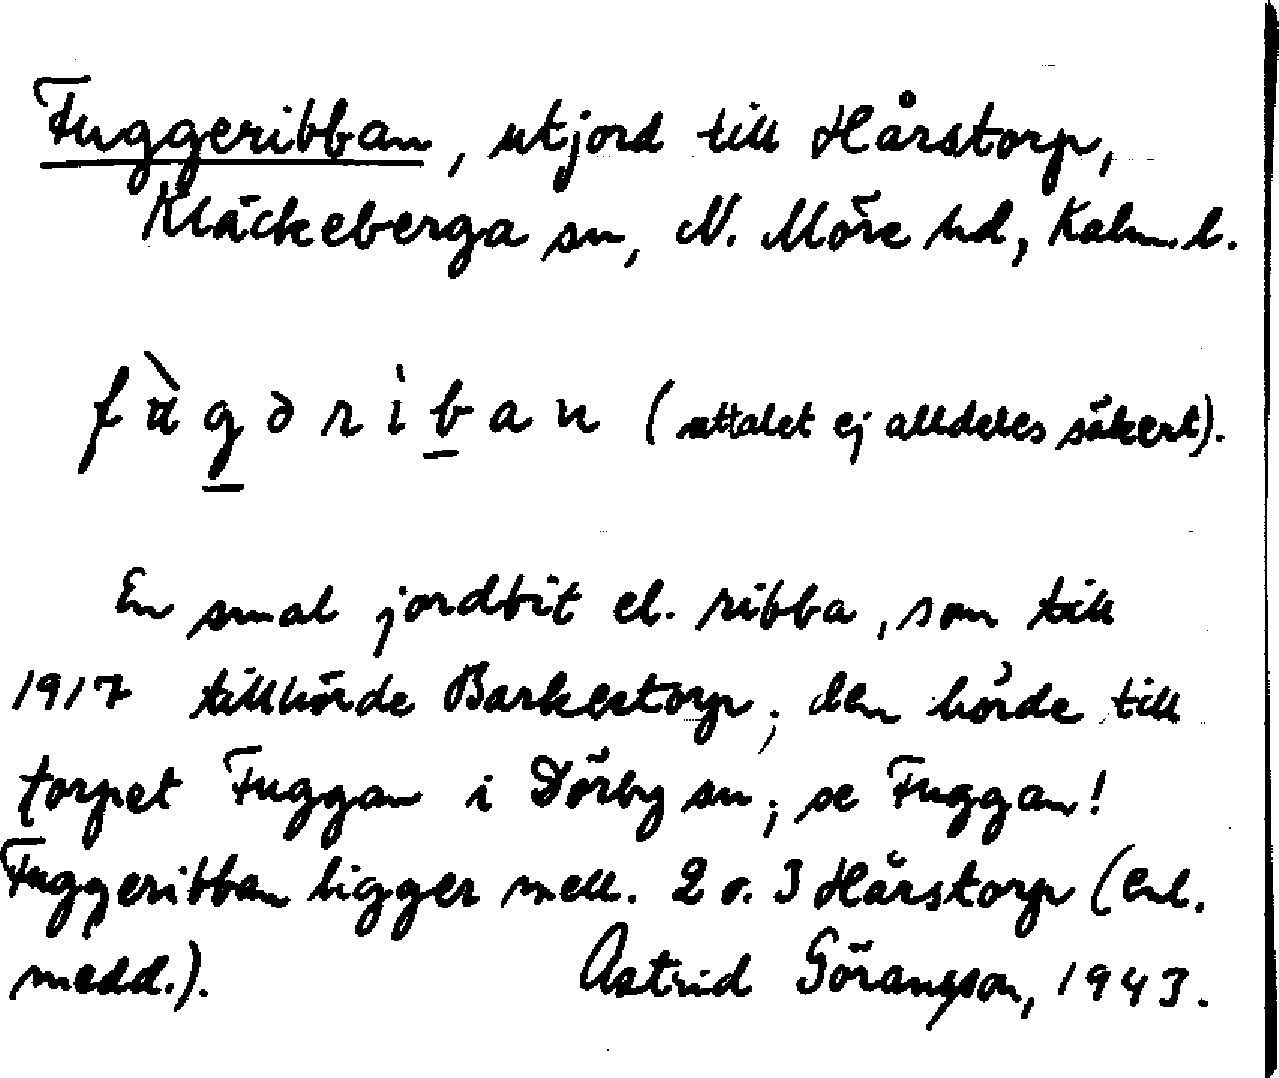 Fuggeribban, utjord till Hårstorp,
Kläckeberga sn, N. Möre hd, Kalm. l.
fùgəriban (uttalet ej alldeles säkert).
En smal jordbit el. ribba, som till
1917 tillhörde Barkestorp; den hörde till
torpet Fuggan i Dörby sn; se Fuggan!
Fuggeribban ligger mell. 2 o. 3 Hårstorp (enl.
medd.). Astrid Göransson, 1943.